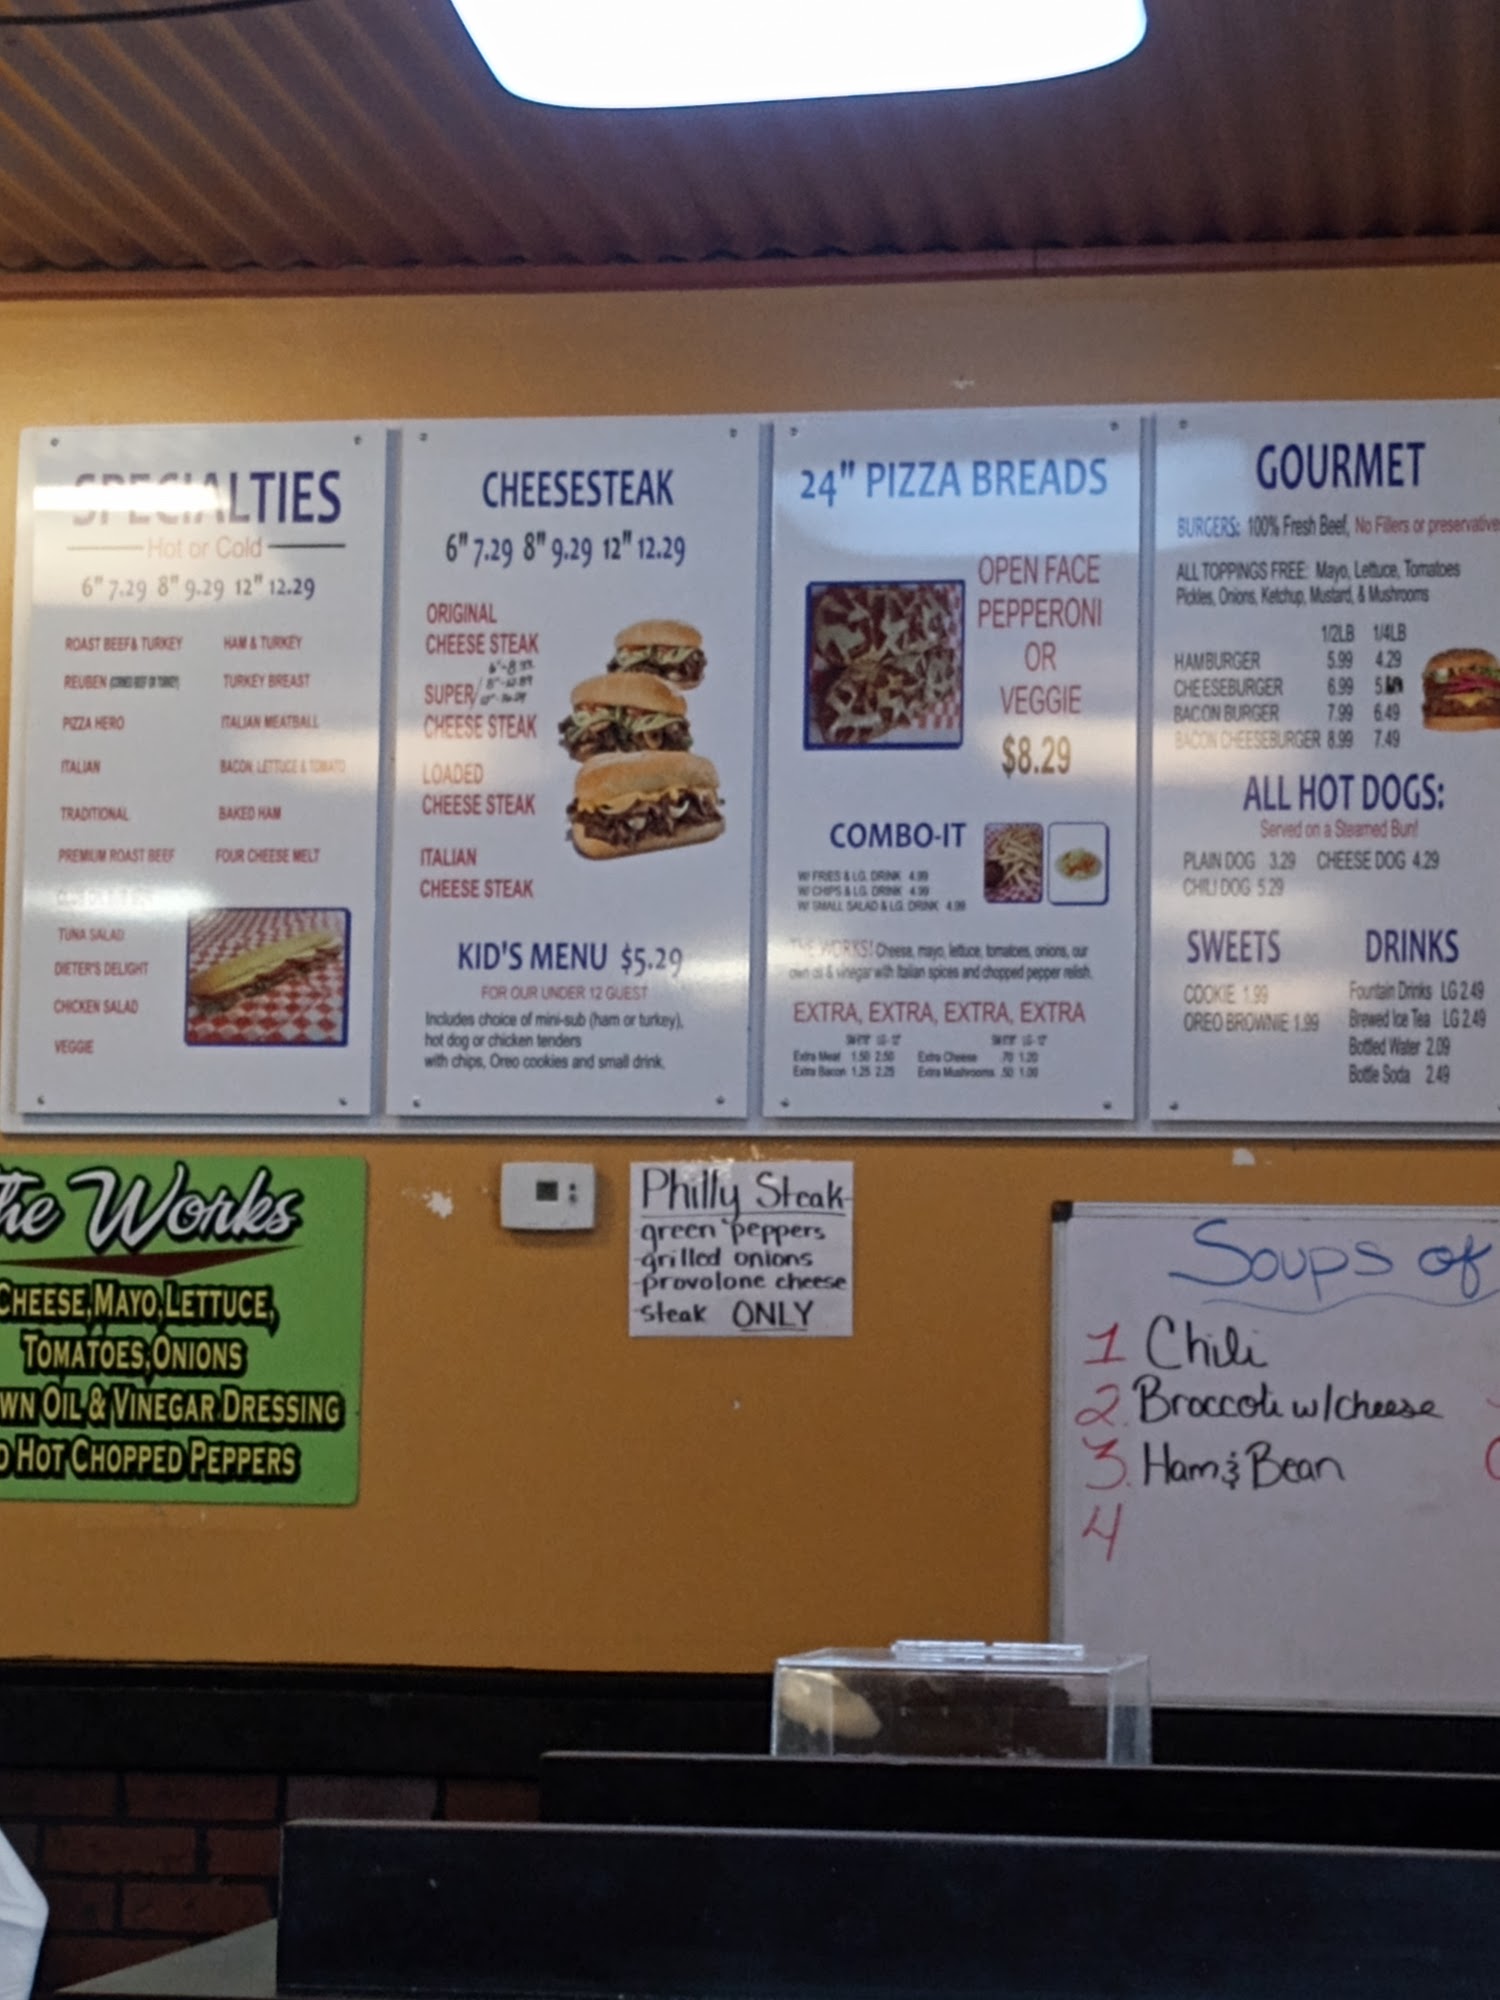 SPECIALTIES
Hot or Cold
6" 7.29 8" 9.29 12" 12.29
ROAST BEEF & TURKEY
REUBEN (CORNED BEEF OR TURKEY)
PIZZA HERO
ITALIAN
TRADITIONAL
PREMIUM ROAST BEEF
TUNA SALAD
DIETER'S DELIGHT
CHICKEN SALAD
VEGGIE
HAM & TURKEY
TURKEY BREAST
ITALIAN MEATBALL
BACON LETTUCE & TOMATO
BAKED HAM
FOUR CHEESE MELT
CHEESESTEAK
6" 7.29 8" 9.29 12" 12.29
ORIGINAL
CHEESE STEAK
SUPER/
CHEESE STEAK
LOADED
CHEESE STEAK
ITALIAN
CHEESE STEAK
KID'S MENU $5.29
FOR OUR UNDER 12 GUEST
Includes choice of mini-sub (ham or turkey),
hot dog or chicken tenders
with chips, Oreo cookies and small drink.
24" PIZZA BREADS
OPEN FACE
PEPPERONI
OR
VEGGIE
$8.29
COMBO-IT
W/ FRIES & LG. DRINK 4.99
W/ CHIPS & LG. DRINK 4.99
W/ SMALL SALAD & LG. DRINK 4.99
THE WORKS! Cheese, mayo, lettuce, tomatoes, onions, our
own oil & vinegar with Italian spices and chopped pepper relish.
EXTRA, EXTRA, EXTRA, EXTRA
Extra Meat 1.50 2.50 Extra Cheese .70 1.20
Extra Bacon 1.25 2.25 Extra Mushrooms .50 1.00
GOURMET
BURGERS: 100% Fresh Beef, No Fillers or preservative
ALL TOPPINGS FREE: Mayo, Lettuce, Tomatoes
Pickles, Onions, Ketchup, Mustard, & Mushrooms
1/2LB 1/4LB
HAMBURGER 5.99 4.29
CHEESEBURGER 6.99
BACON BURGER 7.99 6.49
BACON CHEESEBURGER 8.99 7.49
ALL HOT DOGS:
Served on a Steamed Bun!
PLAIN DOG 3.29 CHEESE DOG 4.29
CHILI DOG 5.29
SWEETS
COOKIE 1.99
OREO BROWNIE 1.99
DRINKS
Fountain Drinks LG 2.49
Brewed Ice Tea LG 2.49
Bottled Water 2.09
Bottle Soda 2.49
the Works
CHEESE, MAYO, LETTUCE,
TOMATOES, ONIONS
WN OIL & VINEGAR DRESSING
D HOT CHOPPED PEPPERS
Philly Steak-
green peppers
-grilled onions
-provolone cheese
-steak ONLY
Soups of
1 Chili
2. Broccoli w/cheese
3. Ham & Bean
4